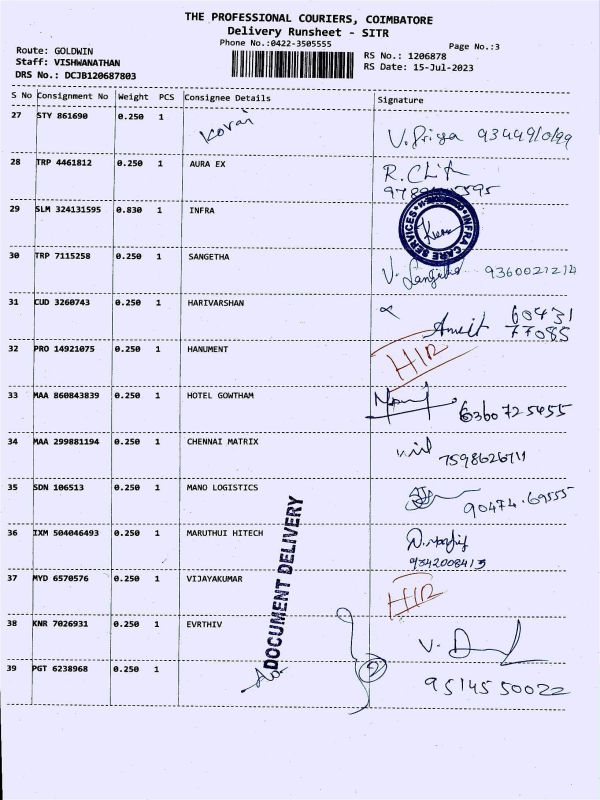 THE PROFESSIONAL COURIERS, COIMBATORE
Delivery Runsheet - SITR
Phone No.:0422-3505555
Page No.:3
Route: GOLDWIN
Staff: VISHWANATHAN
DRS No.: DCJB120687803
RS No.: 1206878
RS Date: 15-Jul-2023
S No Consignment No Weight PCS Consignee Details Signature
27 STY 861690 0.250 1 Kovai V. Priya
28 TRP 4461812 0.250 1 AURA EX
29 SLM 324131595 0.830 1 INFRA INFRA CARE SERVICES
30 TRP 7115258 0.250 1 SANGETHA 9360021214
31 CUD 3260743 0.250 1 HARIVARSHAN 60431
77085
32 PRO 14921075 0.250 1 HANUMENT
33 MAA 860843839 0.250 1 HOTEL GOWTHAM 6360725455
34 MAA 299881194 0.250 1 CHENNAI MATRIX
35 SDN 106513 0.250 1 MANO LOGISTICS 90474.69555
36 IXM 504046493 0.250 1 MARUTHUI HITECH
9342008413
37 MYD 6570576 0.250 1 VIJAYAKUMAR
38 KNR 7026931 0.250 1 EVRTHIV
39 PGT 6238968 0.250 1 9514550022
DOCUMENT DELIVERY